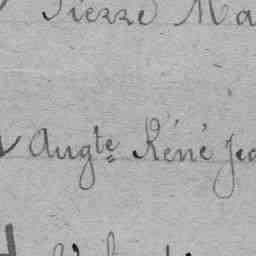 Pierre Ma
Augte Réné Jea